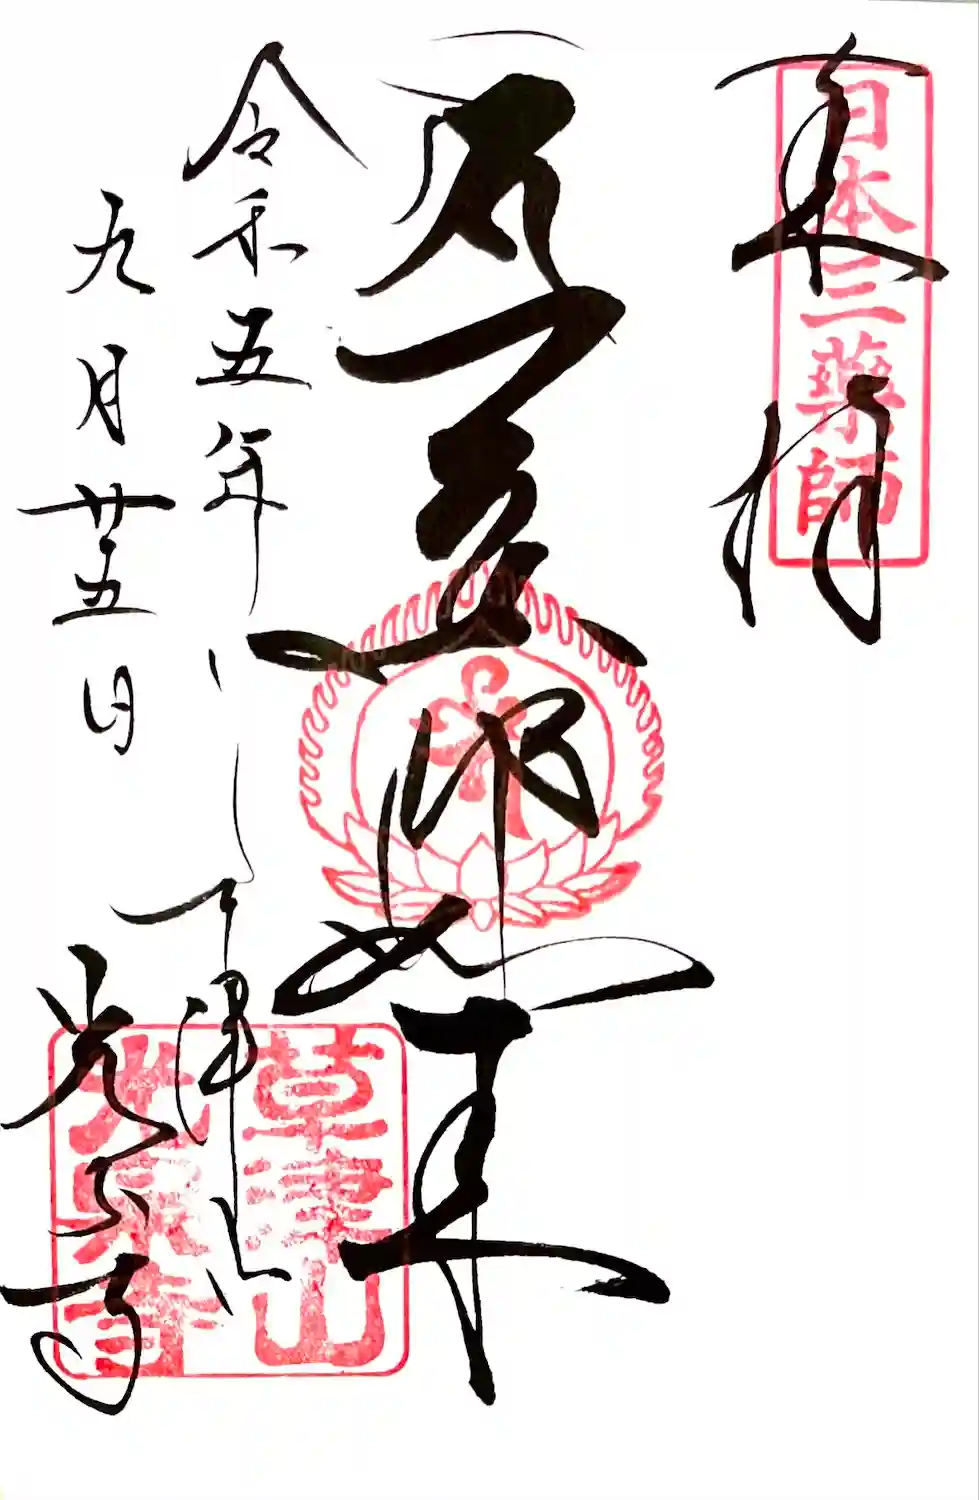 来拝
日本三藥師
薬師如来
令和五年
九月廿五日
草津山
光泉寺
草津山
光泉寺